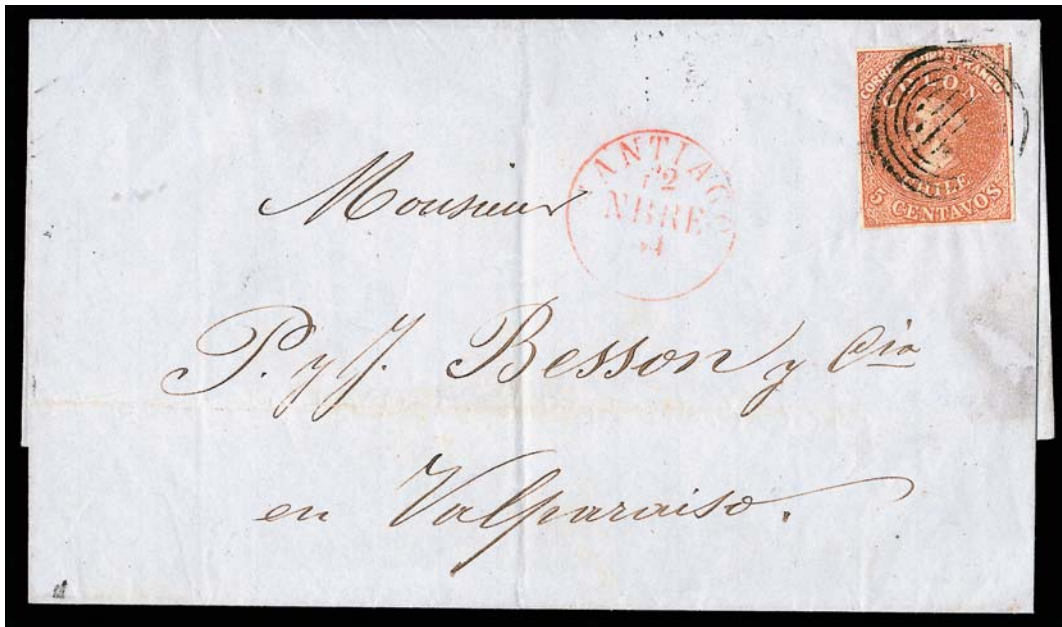 CORREOS PORTE FRANCO
COLON
CHILE
5 CENTAVOS
SANTIAGO
NBRE
Monsieur
P. y J. Besson y Cia
en Valparaiso.